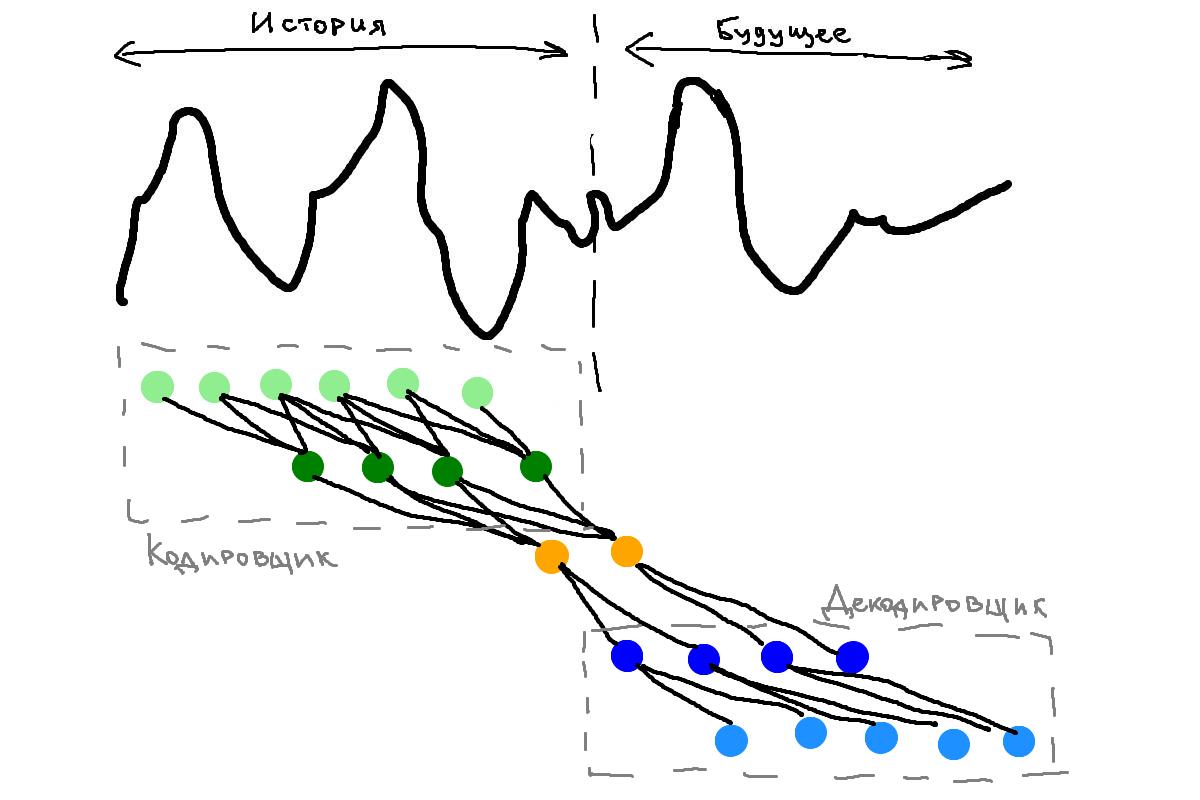 История
Будущее
Кодировщик
Декодировщик